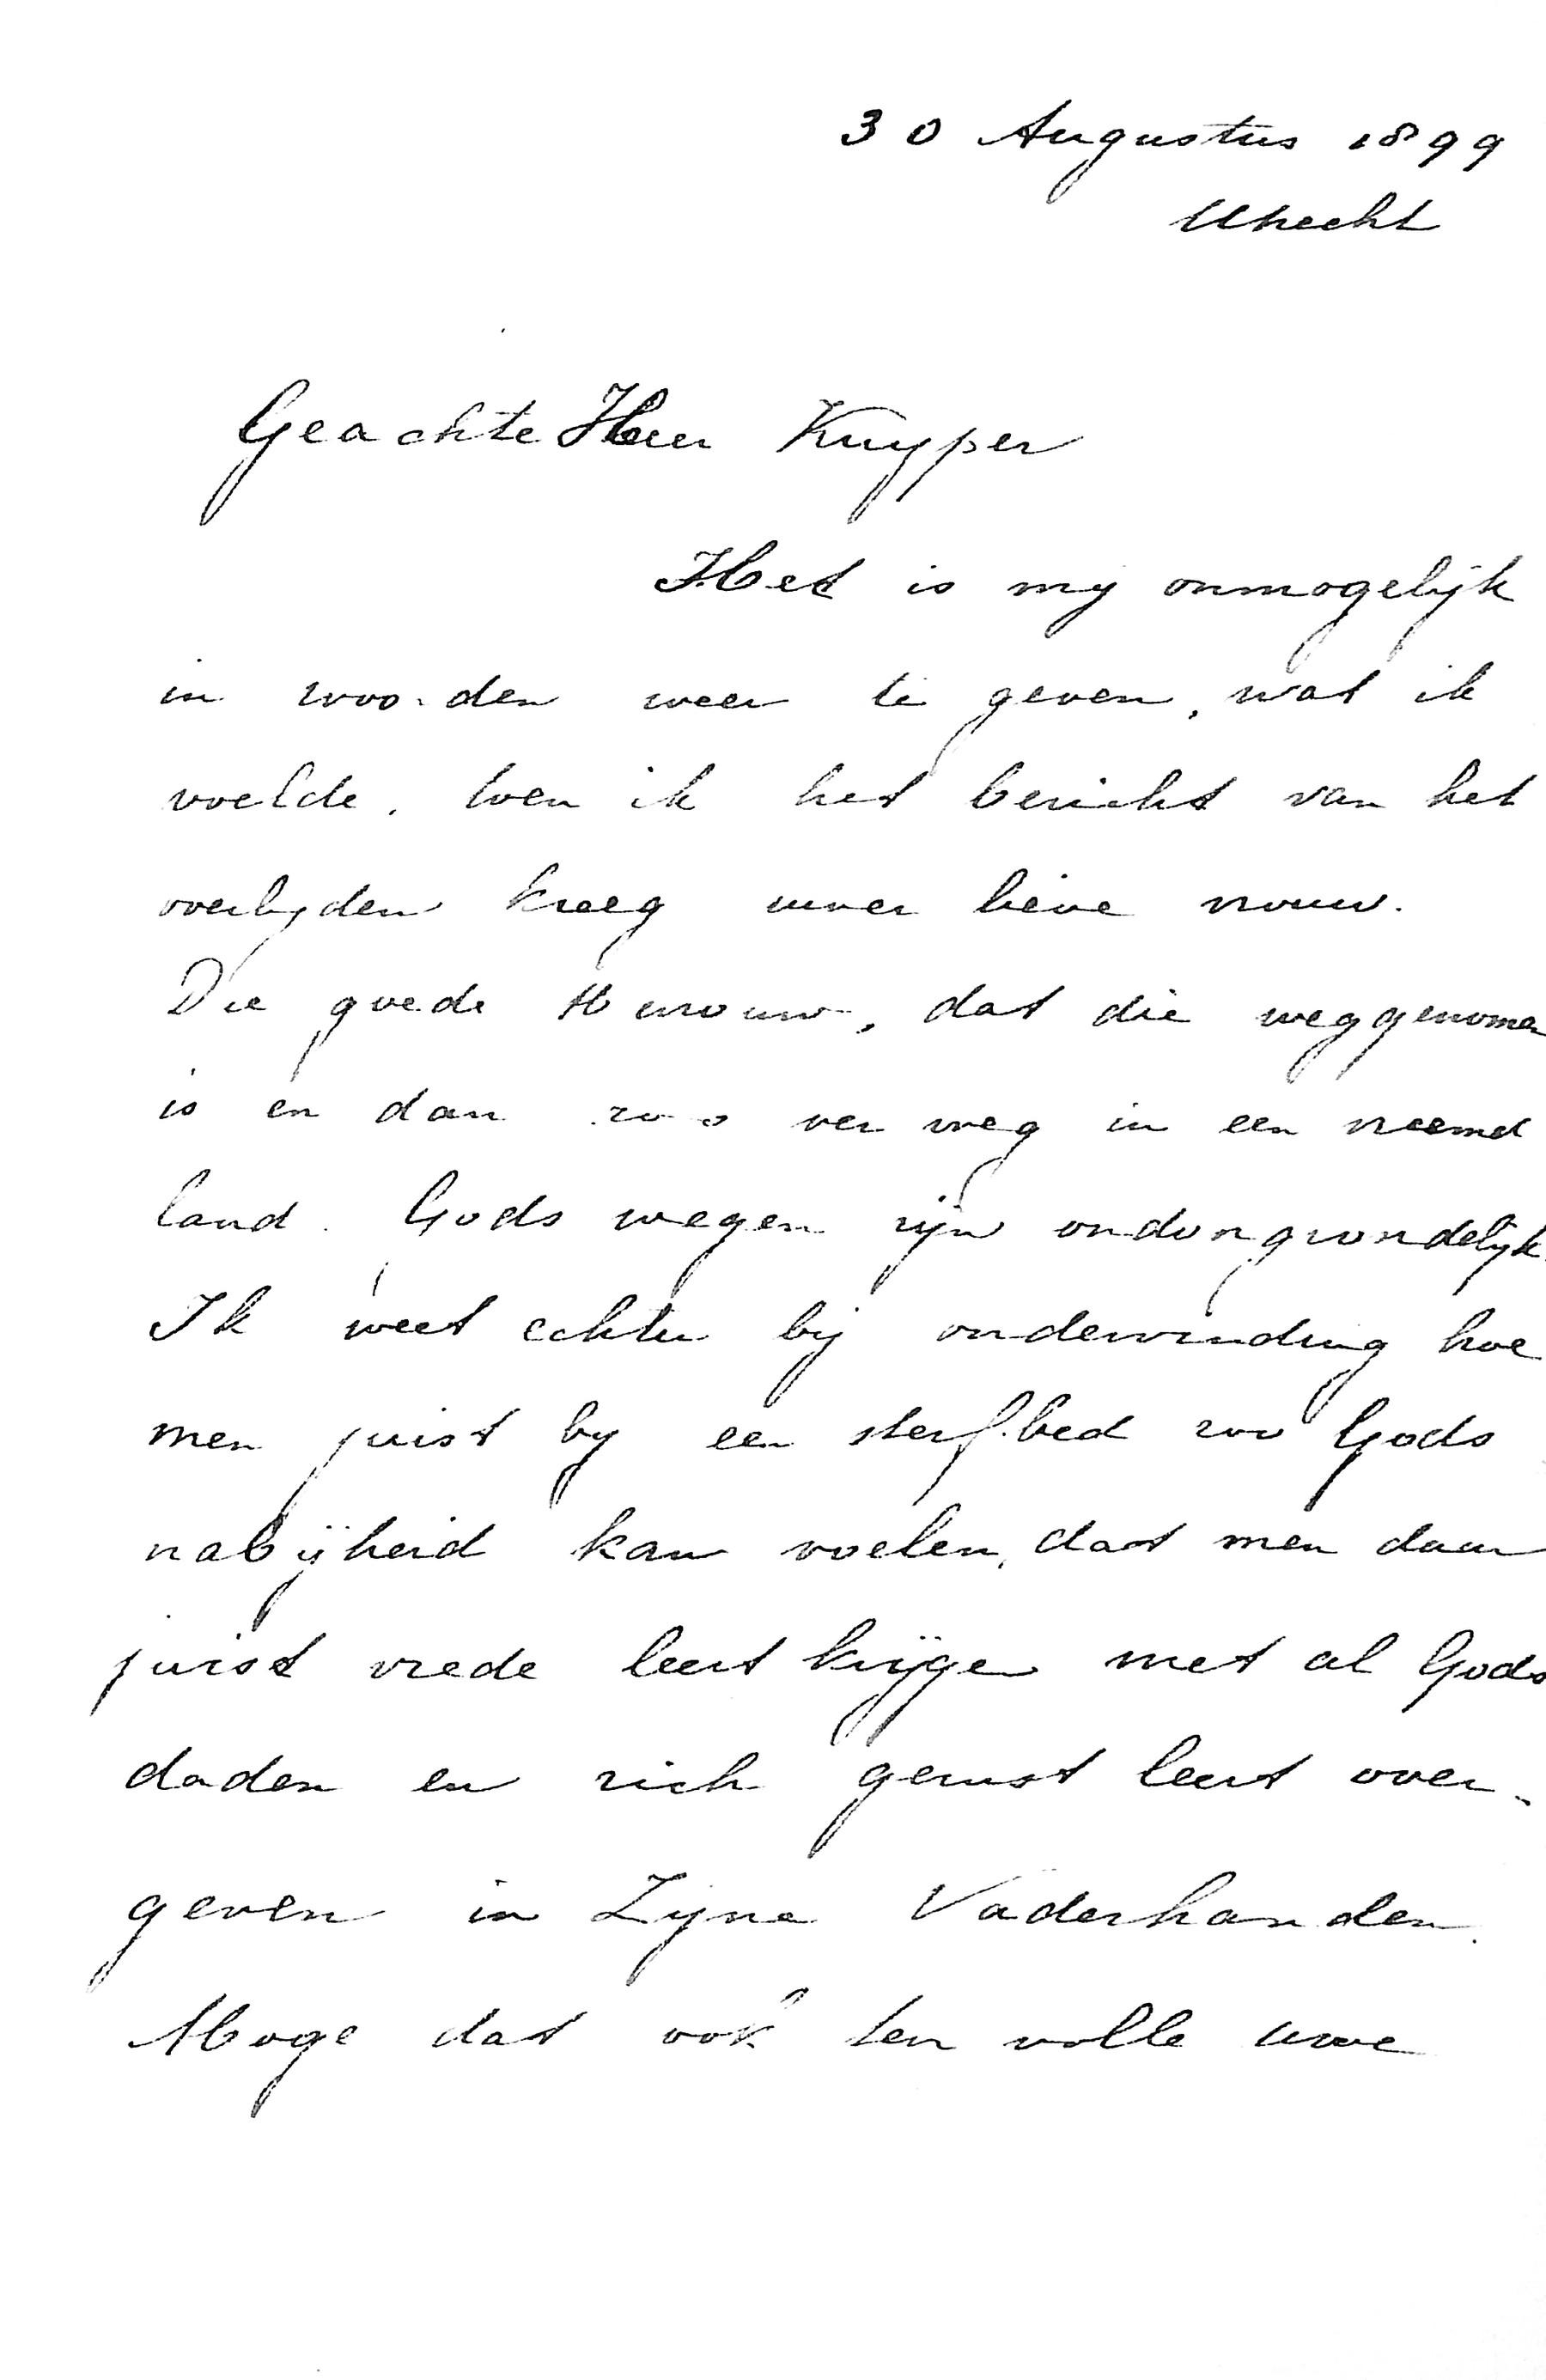 30 Augustus 1899
Utrecht
Geachte Heer Kuyper
Het is mij onmogelijk
in woorden weer te geven, wat ik
voelde, toen ik het bericht van het
overlyden kreeg uwer lieve vrouw.
Die goede Mevrouw, dat die weggenomen
is en dan zoo ver weg in een vreemd
land. Gods wegen zijn ondoorgrondelijk.
Ik weet echter bij ondervinding hoe
men juist by een sterfbed zoo Gods
nabijheid kan voelen, dat men daar
juist vrede leert krijgen met al Gods
daden en zich gerust leert over-
geven in Zijne Vaderhanden.
Moge dat ook ten volle uwe